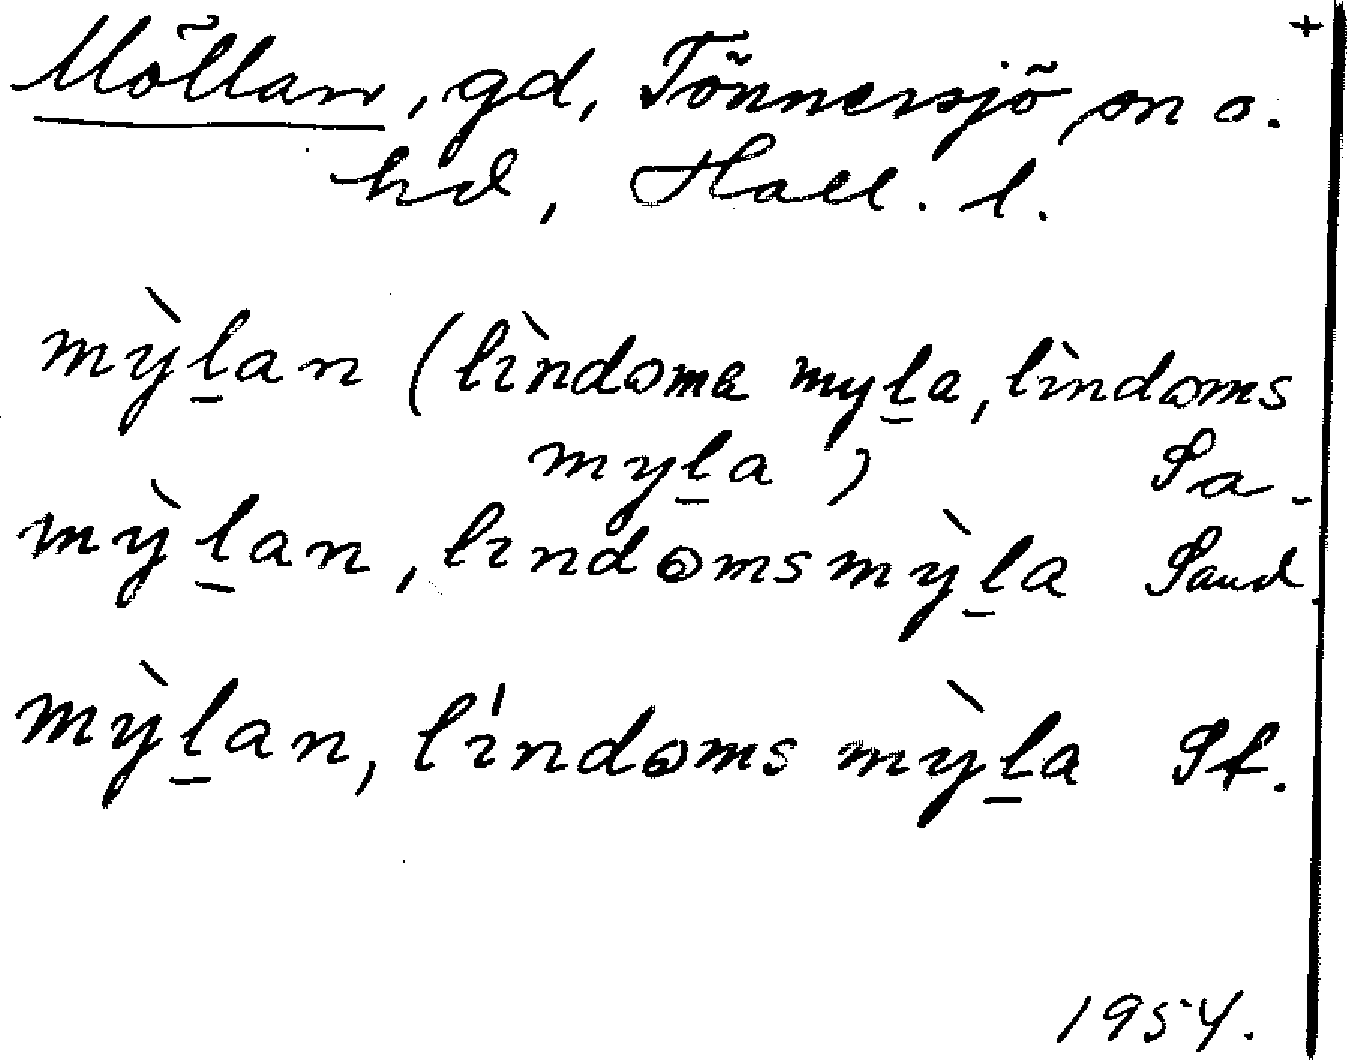 +
Möllan, gd, Tönnersjö sn o.
hd, Hall. l.
mỳḻan (lìndoma myḻa, lìndoms
myḻa) Sa.
mỳḻan, lındomsmỳḻa Sand.
mỳḻan, líndoms mỳḻa Sf.
1954.